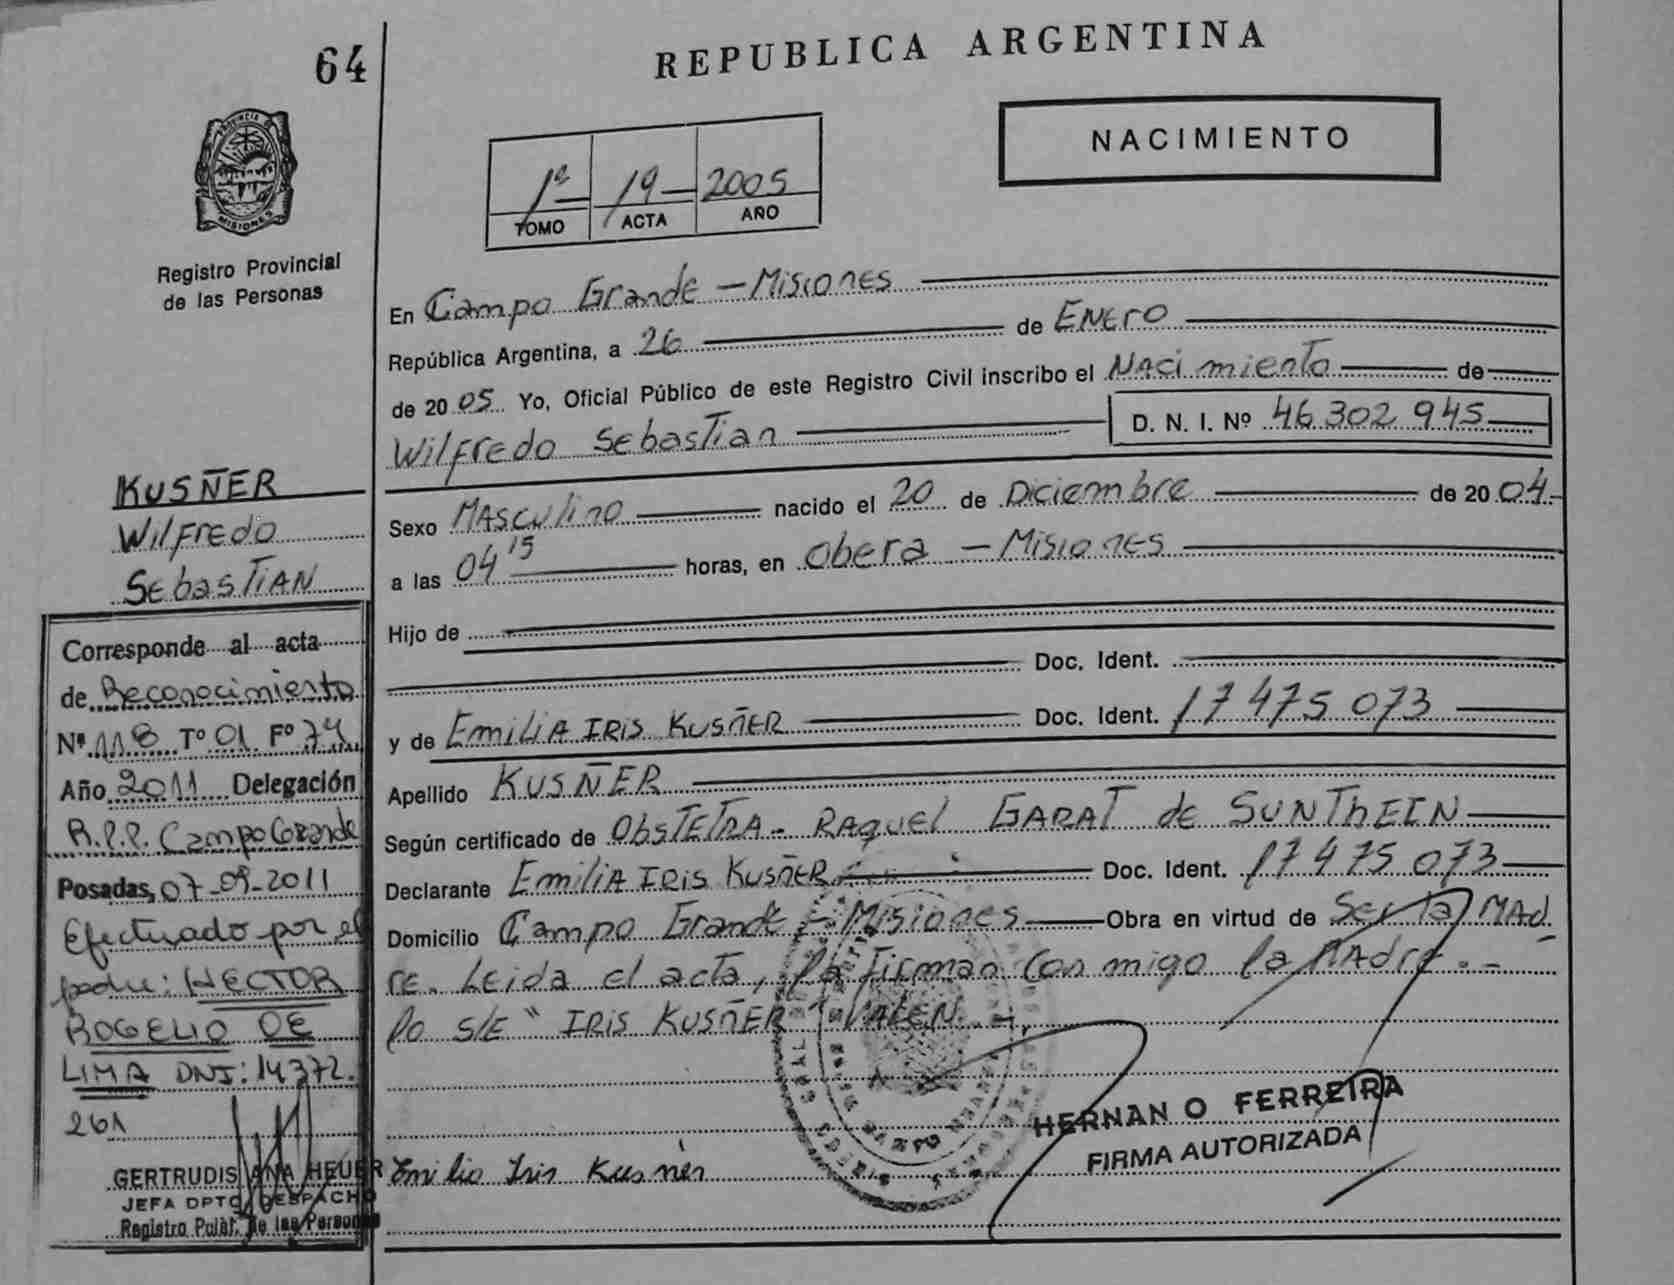 64
REPUBLICA ARGENTINA
NACIMIENTO
1ª 19 2005
TOMO ACTA AÑO
PROVINCIA DE MISIONES
Registro Provincial
de las Personas
En Campo Grande - Misiones
República Argentina, a 26 de Enero
de 2005 Yo, Oficial Público de este Registro Civil inscribo el Nacimiento de
Wilfredo Sebastian D. N. I. Nº 46 302 945
Sexo Masculino nacido el 20 de Diciembre de 2004
a las 04 15 horas, en Obera - Misiones
Hijo de
Doc. Ident.
y de Emilia Iris Kusñer Doc. Ident. 17 475 073
Apellido KUSÑER
Según certificado de Obstetra - Raquel GARAT de SUNTHEIN
Declarante Emilia Iris Kusñer Doc. Ident. 17 475 073
Domicilio Campo Grande - Misiones Obra en virtud de Ser la Mad
re. Leida el acta, la firman conmigo la Madre.-
lo s/e " IRIS KUSÑER" VALEN.-
HERNAN O FERREIRA
FIRMA AUTORIZADA
Emilia Iris Kusñer
KUSÑER
Wilfredo
Sebastian
Corresponde al acta
de Reconocimiento
Nº 118 Tº 01 Fº 74
Año 2011 Delegación
R.P.P. Campo Grande
Posadas, 07-09-2011
Efectuado por el
padre: HECTOR
ROGELIO DE
LIMA DNI: 14372.
261
GERTRUDIS ANA HEUER
JEFA DPTO DESPACHO
Registro de las Personas